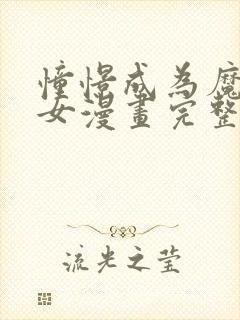 憧憬成為魔
女漫畫完整
流光之莹